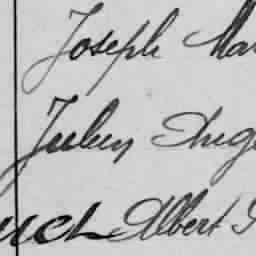 Joseph Mar
Julien Aug
uch Albert J